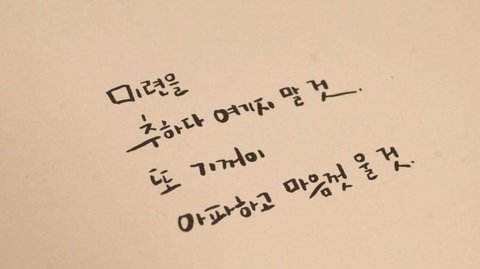 미련을
추하다 여기지 말 것.
또 기꺼이
아파하고 마음껏 울 것.